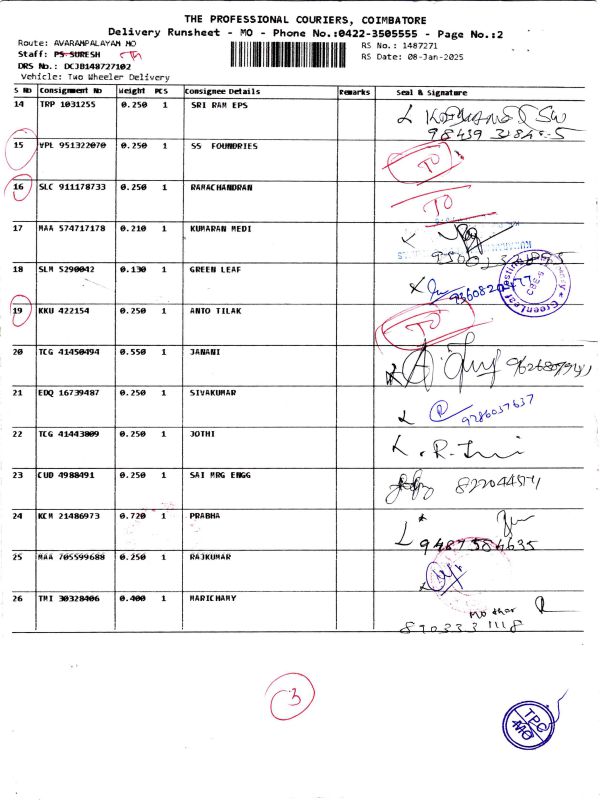 THE PROFESSIONAL COURIERS, COIMBATORE
Delivery Runsheet - MO - Phone No.:0422-3505555 - Page No.:2
Route: AVARAMPALAYAM MO
RS No.: 1487271
Staff: PS.SURESH
RS Date: 08-Jan-2025
DRS No.: DCJB148727102
Vehicle: Two Wheeler Delivery
S No Consignment No Weight PCS Consignee Details Remarks Seal & Signature
14 TRP 1031255 0.250 1 SRI RAM EPS
15 VPL 951322070 0.250 1 SS FOUNDRIES TO
16 SLC 911178733 0.250 1 RAMACHANDRAN TO
17 MAA 574717178 0.210 1 KUMARAN MEDI
18 SLM 5290042 0.130 1 GREEN LEAF
19 KKU 422154 0.250 1 ANTO TILAK TO
20 TCG 41450494 0.550 1 JANANI
21 EDQ 16739487 0.250 1 SIVAKUMAR 9786037637
22 TCG 41443809 0.250 1 JOTHI
23 CUD 4988491 0.250 1 SAI MRG ENGG
24 KCM 21486973 0.720 1 PRABHA
25 MAA 705599688 0.250 1 RAJKUMAR
26 TMI 30328406 0.400 1 MARICHAMY
3
TPC
MO